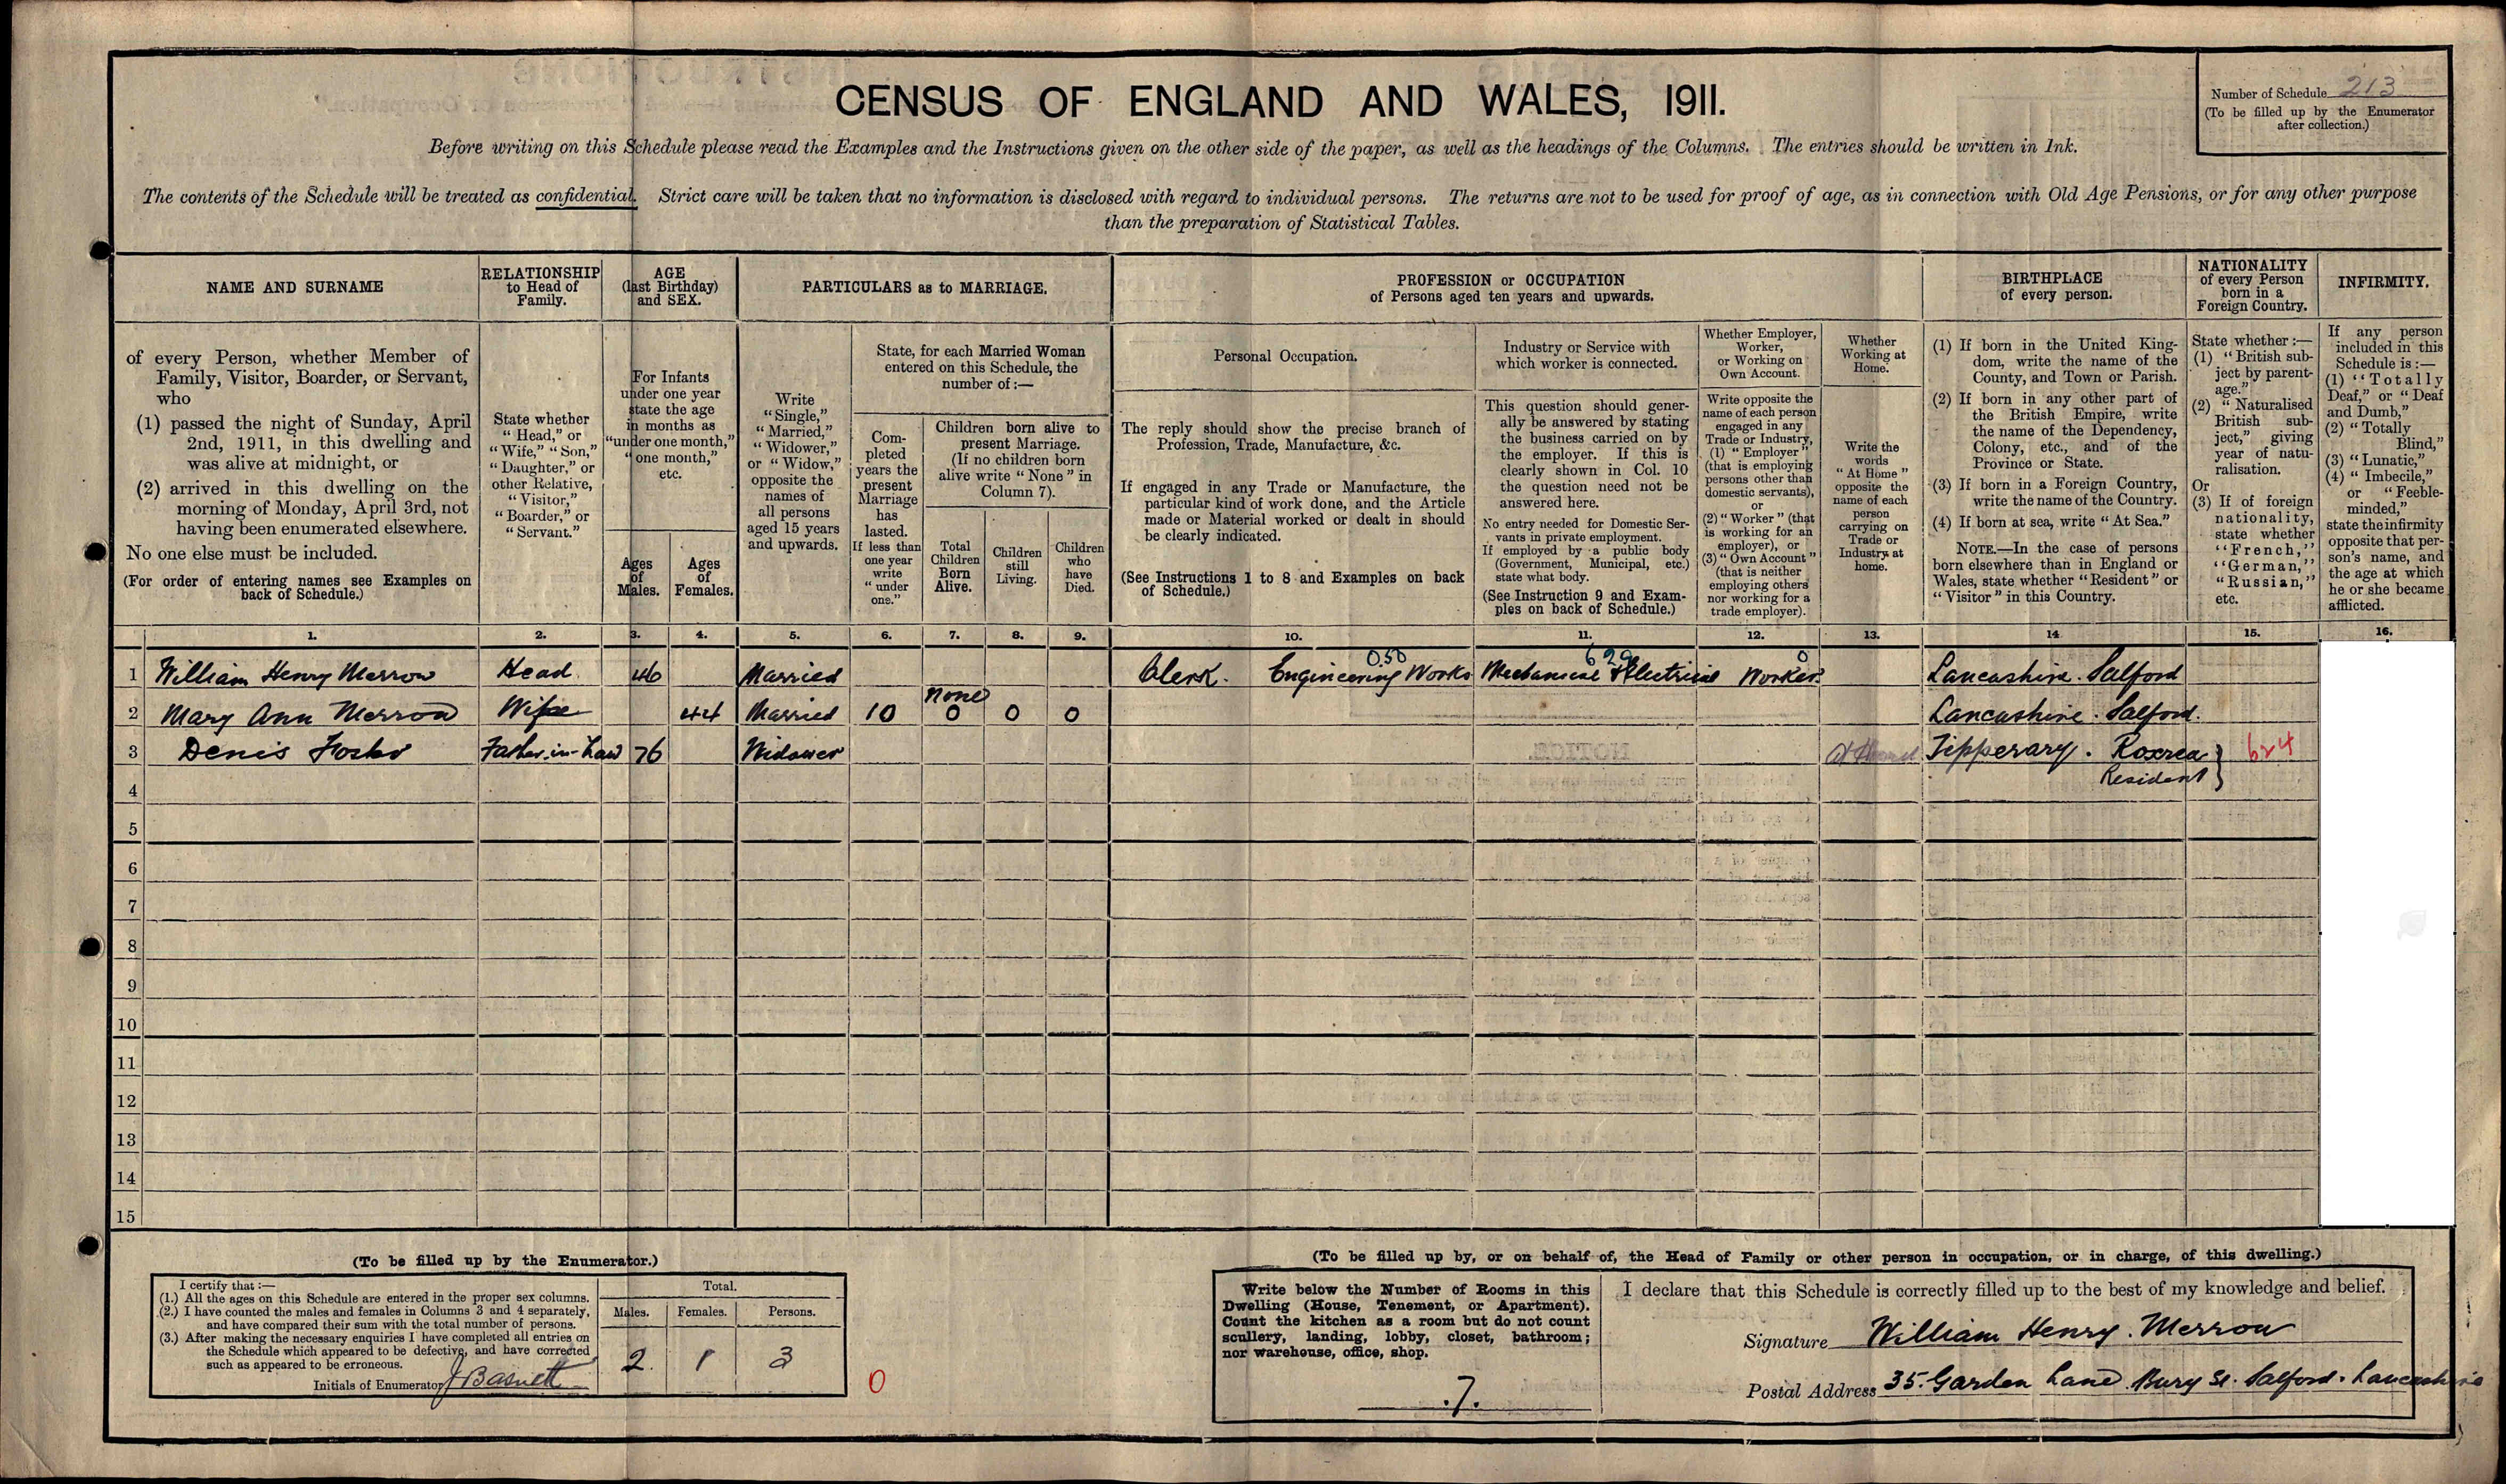 CENSUS OF ENGLAND AND WALES, 1911.
Number of Schedule 213
(To be filled up by the Enumerator
after collection.)
Before writing on this Schedule please read the Examples and the Instructions given on the other side of the paper, as well as the headings of the Columns. The entries should be written in Ink.
The contents of the Schedule will be treated as confidential. Strict care will be taken that no information is disclosed with regard to individual persons. The returns are not to be used for proof of age, as in connection with Old Age Pensions, or for any other purpose
than the preparation of Statistical Tables.
NAME AND SURNAME
of every Person, whether Member of
Family, Visitor, Boarder, or Servant,
who
(1) passed the night of Sunday, April
2nd, 1911, in this dwelling and
was alive at midnight, or
(2) arrived in this dwelling on the
morning of Monday, April 3rd, not
having been enumerated elsewhere.
No one else must be included.
(For order of entering names see Examples on
back of Schedule.)
RELATIONSHIP
to Head of
Family.
State whether
"Head," or
"Wife," "Son,"
"Daughter," or
other Relative,
"Visitor,"
"Boarder," or
"Servant."
AGE
(last Birthday)
and SEX.
For Infants
under one year
state the age
in months as
"under one month,"
"one month,"
etc.
Ages
of
Males.
Ages
of
Females.
PARTICULARS as to MARRIAGE.
Write
"Single,"
"Married,"
"Widower,"
or "Widow,"
opposite the
names of
all persons
aged 15 years
and upwards.
State, for each Married Woman
entered on this Schedule, the
number of:—
Com-
pleted
years the
present
Marriage
has
lasted.
If less than
one year
write
"under
one."
Children born alive to
present Marriage.
(If no children born
alive write "None" in
Column 7).
Total
Children
Born
Alive.
Children
still
Living.
Children
who
have
Died.
PROFESSION or OCCUPATION
of Persons aged ten years and upwards.
Personal Occupation.
The reply should show the precise branch of
Profession, Trade, Manufacture, &c.
If engaged in any Trade or Manufacture, the
particular kind of work done, and the Article
made or Material worked or dealt in should
be clearly indicated.
(See Instructions 1 to 8 and Examples on back
of Schedule.)
Industry or Service with
which worker is connected.
This question should gener-
ally be answered by stating
the business carried on by
the employer. If this is
clearly shown in Col. 10
the question need not be
answered here.
No entry needed for Domestic Ser-
vants in private employment.
If employed by a public body
(Government, Municipal, etc.)
state what body.
(See Instruction 9 and Exam-
ples on back of Schedule.)
Whether Employer,
Worker,
or Working on
Own Account.
Write opposite the
name of each person
engaged in any
Trade or Industry,
(1) "Employer"
(that is employing
persons other than
domestic servants),
or
(2) "Worker" (that
is working for an
employer), or
(3) "Own Account"
(that is neither
employing others
nor working for a
trade employer).
Whether
Working at
Home.
Write the
words
"At Home"
opposite the
name of each
person
carrying on
Trade or
Industry at
home.
BIRTHPLACE
of every person.
(1) If born in the United King-
dom, write the name of the
County, and Town or Parish.
(2) If born in any other part of
the British Empire, write
the name of the Dependency,
Colony, etc., and of the
Province or State.
(3) If born in a Foreign Country,
write the name of the Country.
(4) If born at sea, write "At Sea."
NOTE.—In the case of persons
born elsewhere than in England or
Wales, state whether "Resident" or
"Visitor" in this Country.
NATIONALITY
of every Person
born in a
Foreign Country.
State whether:—
(1) "British sub-
ject by parent-
age."
(2) "Naturalised
British sub-
ject," giving
year of natu-
ralisation.
Or
(3) If of foreign
nationality,
state whether
"French,"
"German,"
"Russian,"
etc.
INFIRMITY.
If any person
included in this
Schedule is:—
(1) "Totally
Deaf," or "Deaf
and Dumb,"
(2) "Totally
Blind,"
(3) "Lunatic,"
(4) "Imbecile,"
or "Feeble-
minded,"
state the infirmity
opposite that per-
son's name, and
the age at which
he or she became
afflicted.
1. 2. 3. 4. 5. 6. 7. 8. 9. 10. 11. 12. 13. 14 15. 16.
050 629 0
1 William Henry Merrow Head 46 Married Clerk. Engineering Works Mechanical & Electrical Worker Lancashire. Salford
None
2 Mary Ann Merrow Wife 44 Married 10 0 0 0 Lancashire. Salford.
3 Denis Foster Father-in-Law 76 Widower At Home Tipperary. Roscrea 624
Resident
4
5
6
7
8
9
10
11
12
13
14
15
(To be filled up by the Enumerator.)
I certify that:—
(1.) All the ages on this Schedule are entered in the proper sex columns.
(2.) I have counted the males and females in Columns 3 and 4 separately,
and have compared their sum with the total number of persons.
(3.) After making the necessary enquiries I have completed all entries on
the Schedule which appeared to be defective, and have corrected
such as appeared to be erroneous.
Initials of Enumerator J Basnett
Total.
Males. Females. Persons.
2. 1 3
0
(To be filled up by, or on behalf of, the Head of Family or other person in occupation, or in charge, of this dwelling.)
Write below the Number of Rooms in this
Dwelling (House, Tenement, or Apartment).
Count the kitchen as a room but do not count
scullery, landing, lobby, closet, bathroom;
nor warehouse, office, shop.
.7.
I declare that this Schedule is correctly filled up to the best of my knowledge and belief.
Signature William Henry. Merrow
Postal Address 35. Garden Lane. Bury St. Salford. Lancashire